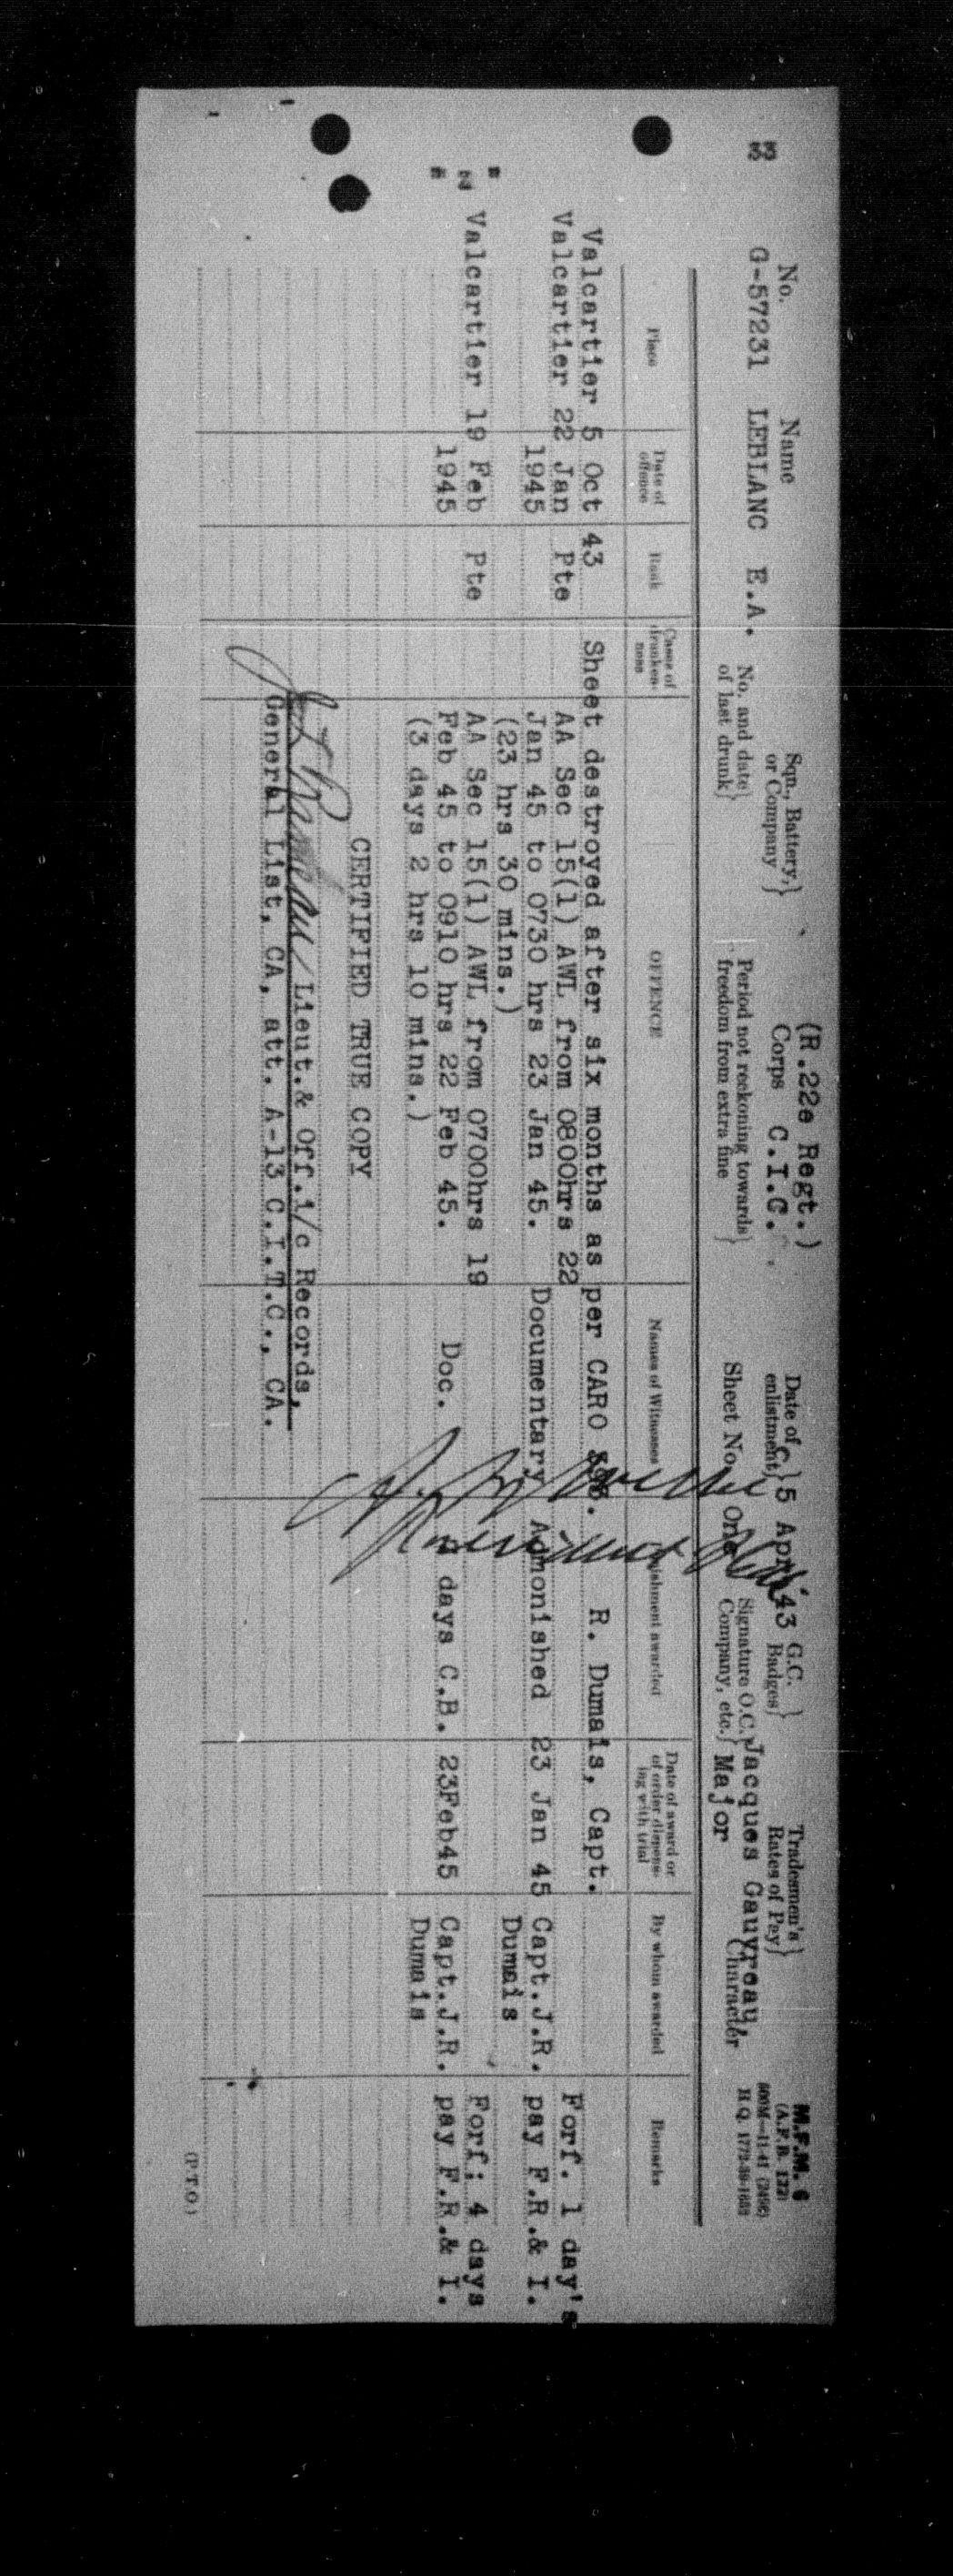 33
M.F.M. 6
(A.F.B. 122)
H.Q. 1772-39-1682
(R.22e Regt.)
No. Name Sqn., Battery, or Company Corps C.I.C. Date of enlistment 5 Apr 43 G.C. Badges Tradesmen's Rates of Pay
G-57231 LEBLANC E.A. No. and date of last drunk Period not reckoning towards freedom from extra fine Sheet No. One Signature O.C. Company, etc. Jacques Gauvreau, Major Character
Place Date of offence Rank Cases of drunkenness OFFENCE Names of Witnesses Punishment awarded Date of award or of order dispensing with trial By whom awarded Remarks
Valcartier 5 Oct 43 Sheet destroyed after six months as per CARO R. Dumais, Capt.
Valcartier 22 Jan Pte AA Sec 15(1) AWL from 0800hrs 22 Forf. 1 day's
1945 Jan 45 to 0730 hrs 23 Jan 45. Documentary Admonished 23 Jan 45 Capt.J.R. pay F.R.& I.
(23 hrs 30 mins.) Dumais
" Valcartier 19 Feb Pte AA Sec 15(1) AWL from 0700hrs 19 Forf: 4 days
" 1945 Feb 45 to 0910 hrs 22 Feb 45. Doc. days C.B. 23Feb45 Capt.J.R. pay F.R.& I.
(3 days 2 hrs 10 mins.) Dumais
CERTIFIED TRUE COPY
Lieut.& Off.i/c Records,
General List, CA, att. A-13 C.I.T.C., CA.
(P.T.O.)